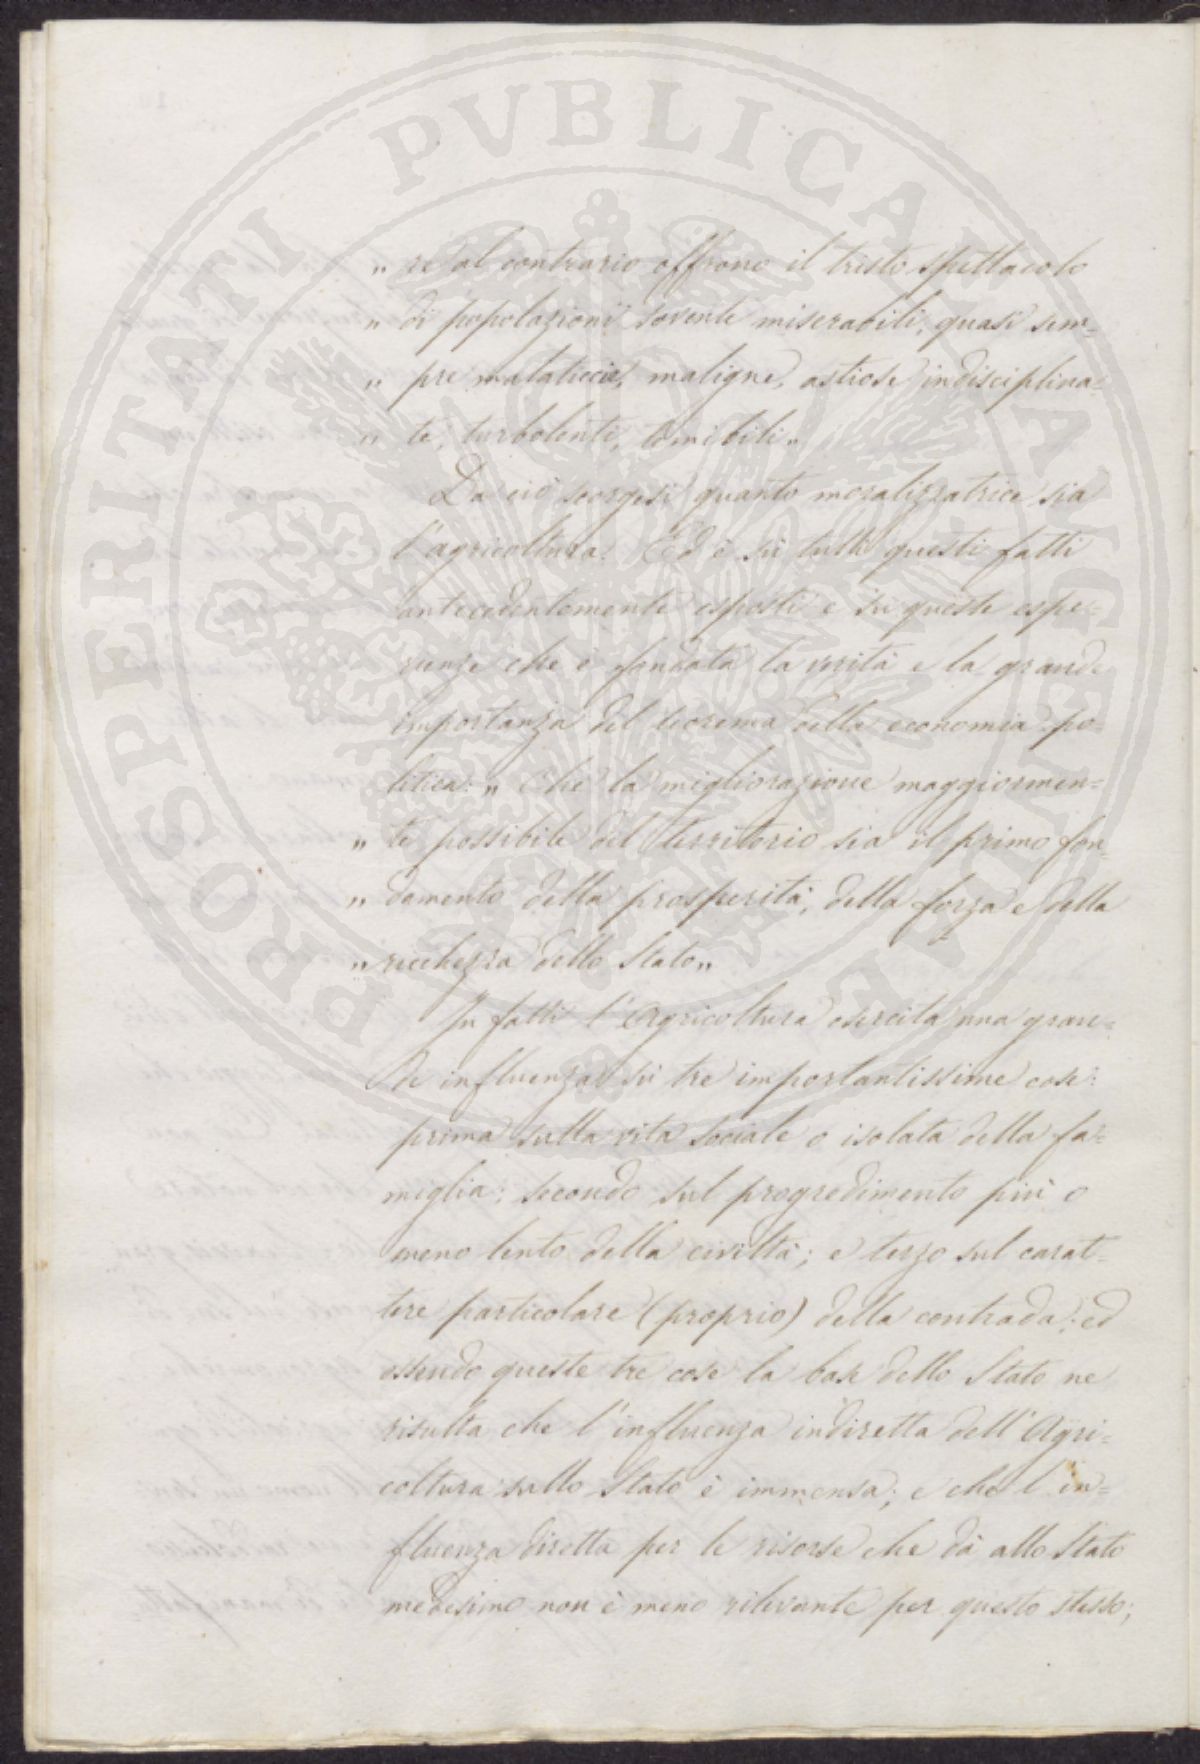 „ re al contrario offrono il tristo spettacolo
„ di popolazioni sovente miserabili, quasi sem-
„ pre malaticcie, maligne, astiose indisciplina-
„ te, turbolenti, temibili„
Da ciò scorgesi quanto moralizzatrice sia
l'agricoltura. Ed è sù tutti questi fatti
antecedentemente esposti e su queste espe-
rienze che è fondata la verità e la grande
importanza del teorema della economia po-
litica: „ Che la migliorazione maggiormen-
„ te possibile del territorio sia il primo fon-
„ damento della prosperità, della forza e della
„ ricchezza dello Stato„
In fatti l'Agricoltura esercita una gran-
de influenza sù tre importantissime cose:
prima sulla vita sociale o isolata della fa-
miglia; secondo sul progredimento più o
meno lento della civiltà; e terzo sul carat-
tere particolare (proprio) della contrada; ed
essendo queste tre cose la base dello Stato ne
risulta che l'influenza indiretta dell'Agri-
coltura sullo Stato è immensa; e che l'in-
fluenza diretta per le risorse che dà allo Stato
medesimo non è meno rilevante per questo stesso;
PROSPERITATI PVBLICAE AVGENDAE